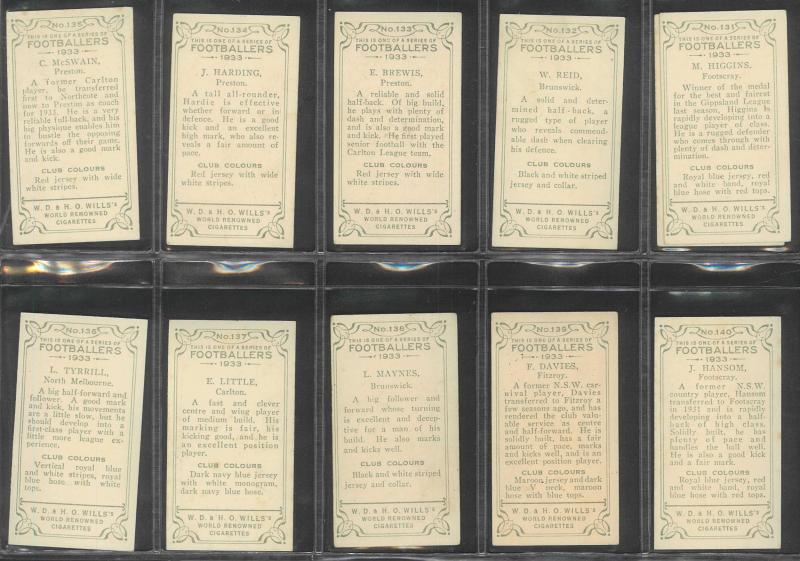 No. 135
THIS IS ONE OF A SERIES OF
FOOTBALLERS
1933
C. McSWAIN,
Preston.
A former Carlton
player, he transferred
first to Northcote and
now to Preston as coach
for 1933. He is a very
reliable full-back, and his
big physique enables him
to bustle the opposing
forwards off their game.
He is also a good mark
and kick.
CLUB COLOURS
Red jersey with wide
white stripes.
W. D. & H. O. WILLS's
WORLD RENOWNED
CIGARETTES
No. 134
THIS IS ONE OF A SERIES OF
FOOTBALLERS
1933
J. HARDING,
Preston.
A tall all-rounder,
Hardie is effective
whether forward or in
defence. He is a good
kick and an excellent
high mark, who also re-
veals a fair amount of
pace.
CLUB COLOURS
Red jersey with wide
white stripes.
W. D. & H. O. WILLS's
WORLD RENOWNED
CIGARETTES
No. 133
THIS IS ONE OF A SERIES OF
FOOTBALLERS
1933
E. BREWIS,
Preston.
A reliable and solid
half-back. Of big build,
he plays with plenty of
dash and determination,
and is also a good mark
and kick. He first played
senior football with the
Carlton League team.
CLUB COLOURS
Red jersey with wide
white stripes.
W. D. & H. O. WILLS's
WORLD RENOWNED
CIGARETTES
No. 132
THIS IS ONE OF A SERIES OF
FOOTBALLERS
1933
W. REID,
Brunswick.
A solid and deter-
mined half-back, a
rugged type of player
who reveals commend-
able dash when clearing
his defence.
CLUB COLOURS
Black and white striped
jersey and collar.
W. D. & H. O. WILLS's
WORLD RENOWNED
CIGARETTES
No. 131
THIS IS ONE OF A SERIES OF
FOOTBALLERS
1933
M. HIGGINS.
Footscray.
Winner of the medal
for the best and fairest
in the Gippsland League
last season, Higgins is
rapidly developing into a
league player of class.
He is a rugged defender
who comes through with
plenty of dash and deter-
mination.
CLUB COLOURS
Royal blue jersey, red
and white band, royal
blue hose with red tops.
W. D. & H. O. WILLS's
WORLD RENOWNED
CIGARETTES
No. 136
THIS IS ONE OF A SERIES OF
FOOTBALLERS
1933
L. TYRRILL,
North Melbourne.
A big half-forward and
follower. A good mark
and kick, his movements
are a little slow, but he
should develop into a
first-class player with a
little more league ex-
perience.
CLUB COLOURS
Vertical royal blue
and white stripes, royal
blue hose with white
tops.
W. D. & H. O. WILLS's
WORLD RENOWNED
CIGARETTES
No. 137
THIS IS ONE OF A SERIES OF
FOOTBALLERS
1933
E. LITTLE,
Carlton.
A fast and clever
centre and wing player
of medium build. His
marking is fair, his
kicking good, and he is
an excellent position
player.
CLUB COLOURS
Dark navy blue jersey
with white monogram,
dark navy blue hose.
W. D. & H. O. WILLS's
WORLD RENOWNED
CIGARETTES
No. 138
THIS IS ONE OF A SERIES OF
FOOTBALLERS
1933
L. MAYNES,
Brunswick.
A big follower and
forward whose turning
is excellent and decep-
tive for a man of his
build. He also marks
and kicks well.
CLUB COLOURS
Black and white striped
jersey and collar.
W. D. & H. O. WILLS's
WORLD RENOWNED
CIGARETTES
No. 139
THIS IS ONE OF A SERIES OF
FOOTBALLERS
1933
F. DAVIES,
Fitzroy.
A former N.S.W. car-
nival player, Davies
transferred to Fitzroy a
few seasons ago, and has
rendered the club valu-
able service as centre
and half-forward. He is
solidly built, has a fair
amount of pace, marks
and kicks well, and is an
excellent position player.
CLUB COLOURS
Maroon jersey and dark
blue V neck, maroon
hose with blue tops.
W. D. & H. O. WILLS's
WORLD RENOWNED
CIGARETTES
No. 140
THIS IS ONE OF A SERIES OF
FOOTBALLERS
1933
J. HANSOM,
Footscray.
A former N.S.W.
country player, Hansom
transferred to Footscray
in 1931 and is rapidly
developing into a half-
back of high class.
Solidly built, he has
plenty of pace and
handles the ball well.
He is also a good kick
and a fair mark.
CLUB COLOURS
Royal blue jersey, red
and white band, royal
blue hose with red tops.
W. D. & H. O. WILLS's
WORLD RENOWNED
CIGARETTES